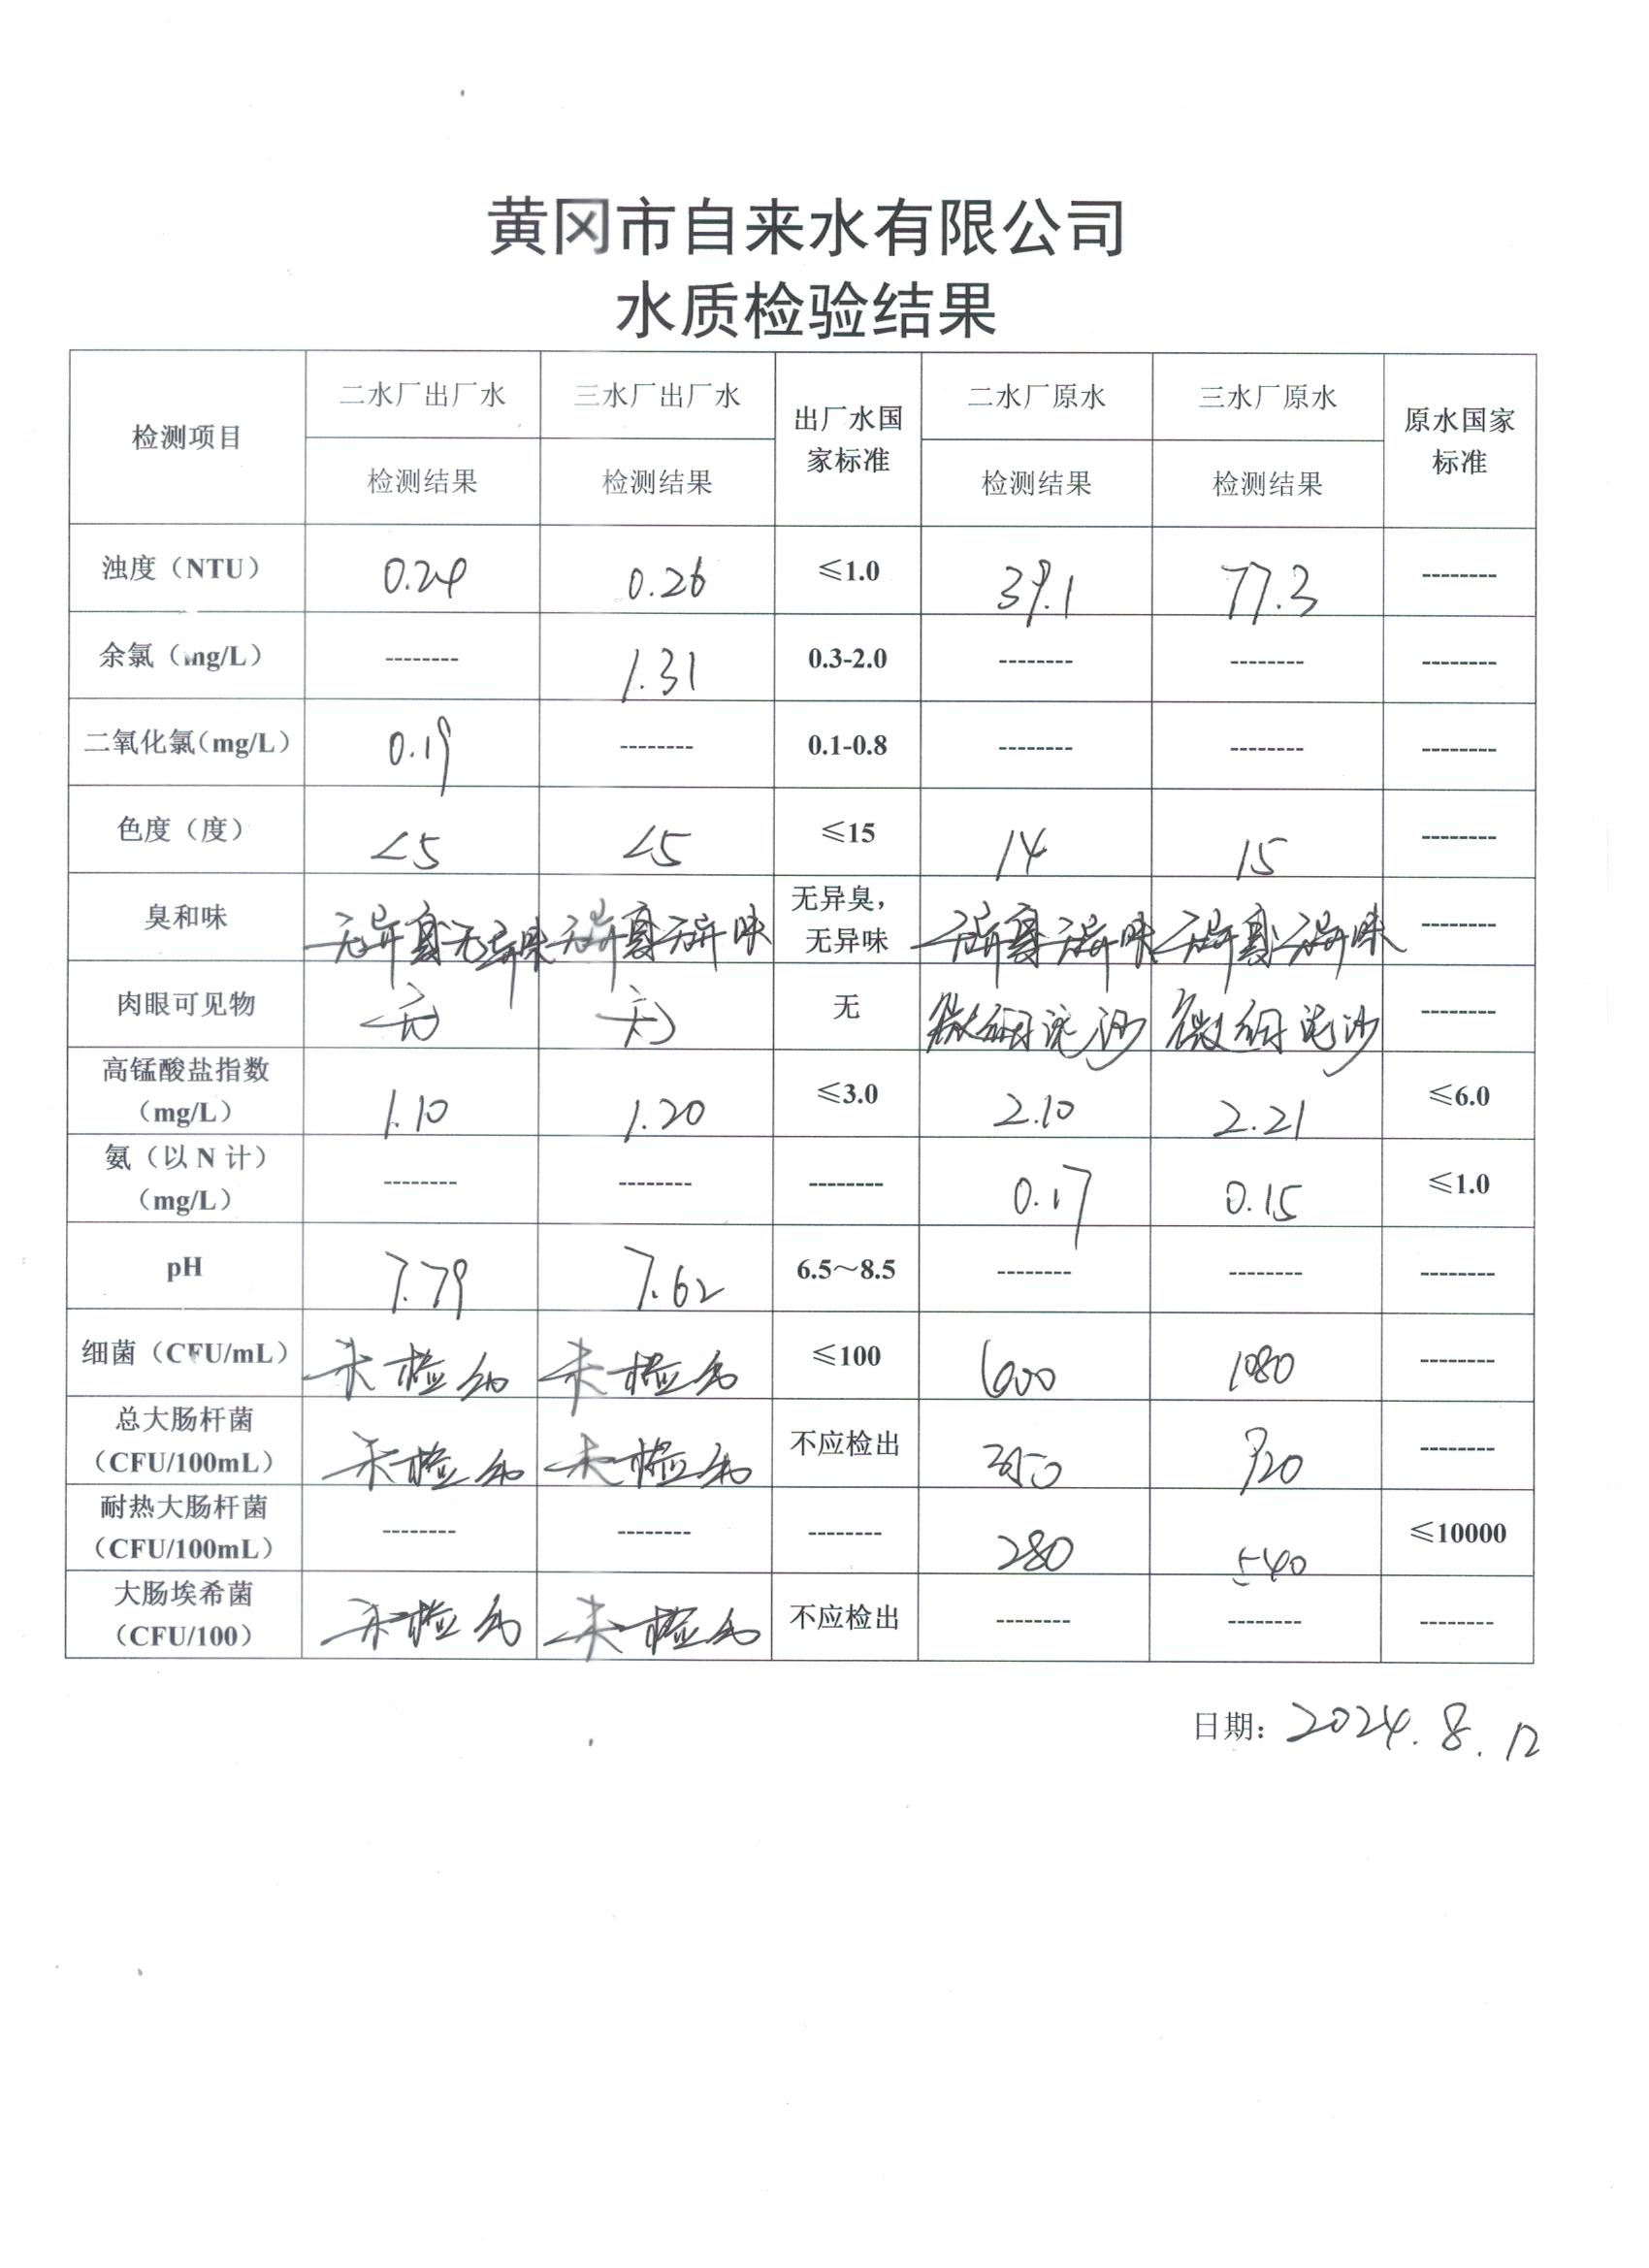 黄冈市自来水有限公司
水质检验结果
检测项目 二水厂出厂水 三水厂出厂水 出厂水国家标准 二水厂原水 三水厂原水 原水国家标准
检测结果 检测结果 检测结果 检测结果
浊度（NTU） 0.24 0.26 ≤1.0 39.1 77.3 --------
余氯（mg/L） -------- 1.31 0.3-2.0 -------- -------- --------
二氧化氯(mg/L) 0.19 -------- 0.1-0.8 -------- -------- --------
色度（度） <5 <5 ≤15 14 15 --------
臭和味 无异臭无异味 无异臭无异味 无异臭，无异味 无异臭无异味 无异臭无异味 --------
肉眼可见物 无 无 无 微细泥沙 微细泥沙 --------
高锰酸盐指数（mg/L） 1.10 1.20 ≤3.0 2.10 2.21 ≤6.0
氨（以 N 计）（mg/L） -------- -------- -------- 0.17 0.15 ≤1.0
pH 7.79 7.62 6.5～8.5 -------- -------- --------
细菌（CFU/mL） 未检出 未检出 ≤100 600 1080 --------
总大肠杆菌（CFU/100mL） 未检出 未检出 不应检出 920 --------
耐热大肠杆菌（CFU/100mL） -------- -------- -------- 280 540 ≤10000
大肠埃希菌（CFU/100） 未检出 未检出 不应检出 -------- -------- --------
日期：2024.8.12